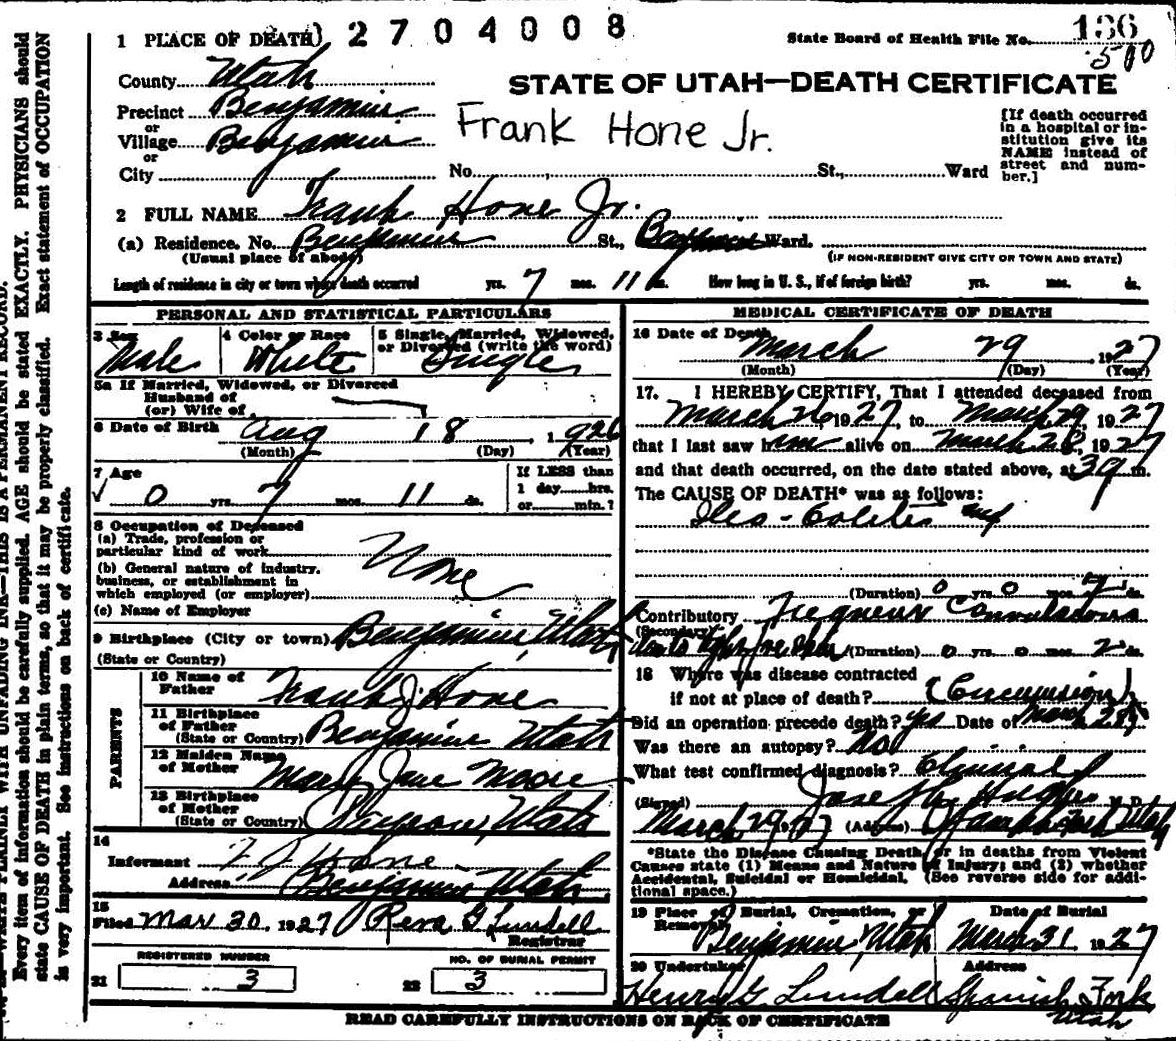 1 PLACE OF DEATH) 2704008
State Board of Health File No. 136
500
County Utah
STATE OF UTAH—DEATH CERTIFICATE
Precinct Benjamin
or
Village Benjamin
or
City
Frank Hone Jr.
No. , St., Ward
[If death occurred
in a hospital or in-
stitution give its
NAME instead of
street and num-
ber.]
2 FULL NAME Frank Hone Jr.
(a) Residence. No. Benjamin St., Ward.
(Usual place of abode)
(IF NON-RESIDENT GIVE CITY OR TOWN AND STATE)
Length of residence in city or town where death occurred yrs. 7 mos. 11 ds. How long in U. S., if of foreign birth? yrs. mos. ds.
PERSONAL AND STATISTICAL PARTICULARS
3 Sex
Male
4 Color or Race
White
5 Single, Married, Widowed,
or Divorced (write the word)
Single
5a If Married, Widowed, or Divorced
Husband of
(or) Wife of
6 Date of Birth Aug 18, 1926
(Month) (Day) (Year)
7 Age
0 yrs. 7 mos. 11 ds.
If LESS than
1 day hrs.
or min.?
8 Occupation of Deceased
(a) Trade, profession or
particular kind of work
None
(b) General nature of industry,
business, or establishment in
which employed (or employer)
(c) Name of Employer
9 Birthplace (City or town) Benjamin, Utah
(State or Country)
PARENTS
10 Name of
Father Frank J. Hone
11 Birthplace
of Father
(State or Country) Benjamin Utah
12 Maiden Name
of Mother Mary Jane
13 Birthplace
of Mother
(State or Country) Payson, Utah
14
Informant F J Hone
Address Benjamin Utah
15
Filed Mar 30, 1927 Reva G Lundell
Registrar
REGISTERED NUMBER
21 3
NO. OF BURIAL PERMIT
22 3
MEDICAL CERTIFICATE OF DEATH
16 Date of Death
March 29, 1927
(Month) (Day) (Year)
17. I HEREBY CERTIFY, That I attended deceased from
March 26 1927, to March 29, 1927
that I last saw him alive on March 28, 1927
and that death occurred, on the date stated above, at m.
The CAUSE OF DEATH* was as follows:
Ileo-Colitis
(Duration) 0 yrs. 0 mos. 7 ds.
Contributory Frequent Convulsions
(Secondary)
due to tight foreskin (Duration) 0 yrs. 0 mos. 2 ds.
18 Where was disease contracted
if not at place of death? (Circumcision)
Did an operation precede death? Yes Date of March 28
Was there an autopsy? No
What test confirmed diagnosis? Clinical
(Signed) Jos. Hughes M. D.
March 29, 1927 (Address) Spanish Fork Utah
*State the Disease Causing Death, or in deaths from Violent
Causes state (1) Means and Nature of Injury; and (2) whether
Accidental, Suicidal or Homicidal. (See reverse side for addi-
tional space.)
19 Place of Burial, Cremation, or
Removal
Benjamin, Utah
Date of Burial
March 31 1927
20 Undertaker
Henry G Lundell
Address
Spanish Fork
Utah
READ CAREFULLY INSTRUCTIONS ON BACK OF CERTIFICATE
WRITE PLAINLY WITH UNFADING INK—THIS IS A PERMANENT RECORD.
Every item of information should be carefully supplied. AGE should be stated EXACTLY. PHYSICIANS should
state CAUSE OF DEATH in plain terms, so that it may be properly classified. Exact statement of OCCUPATION
is very important. See instructions on back of certificate.